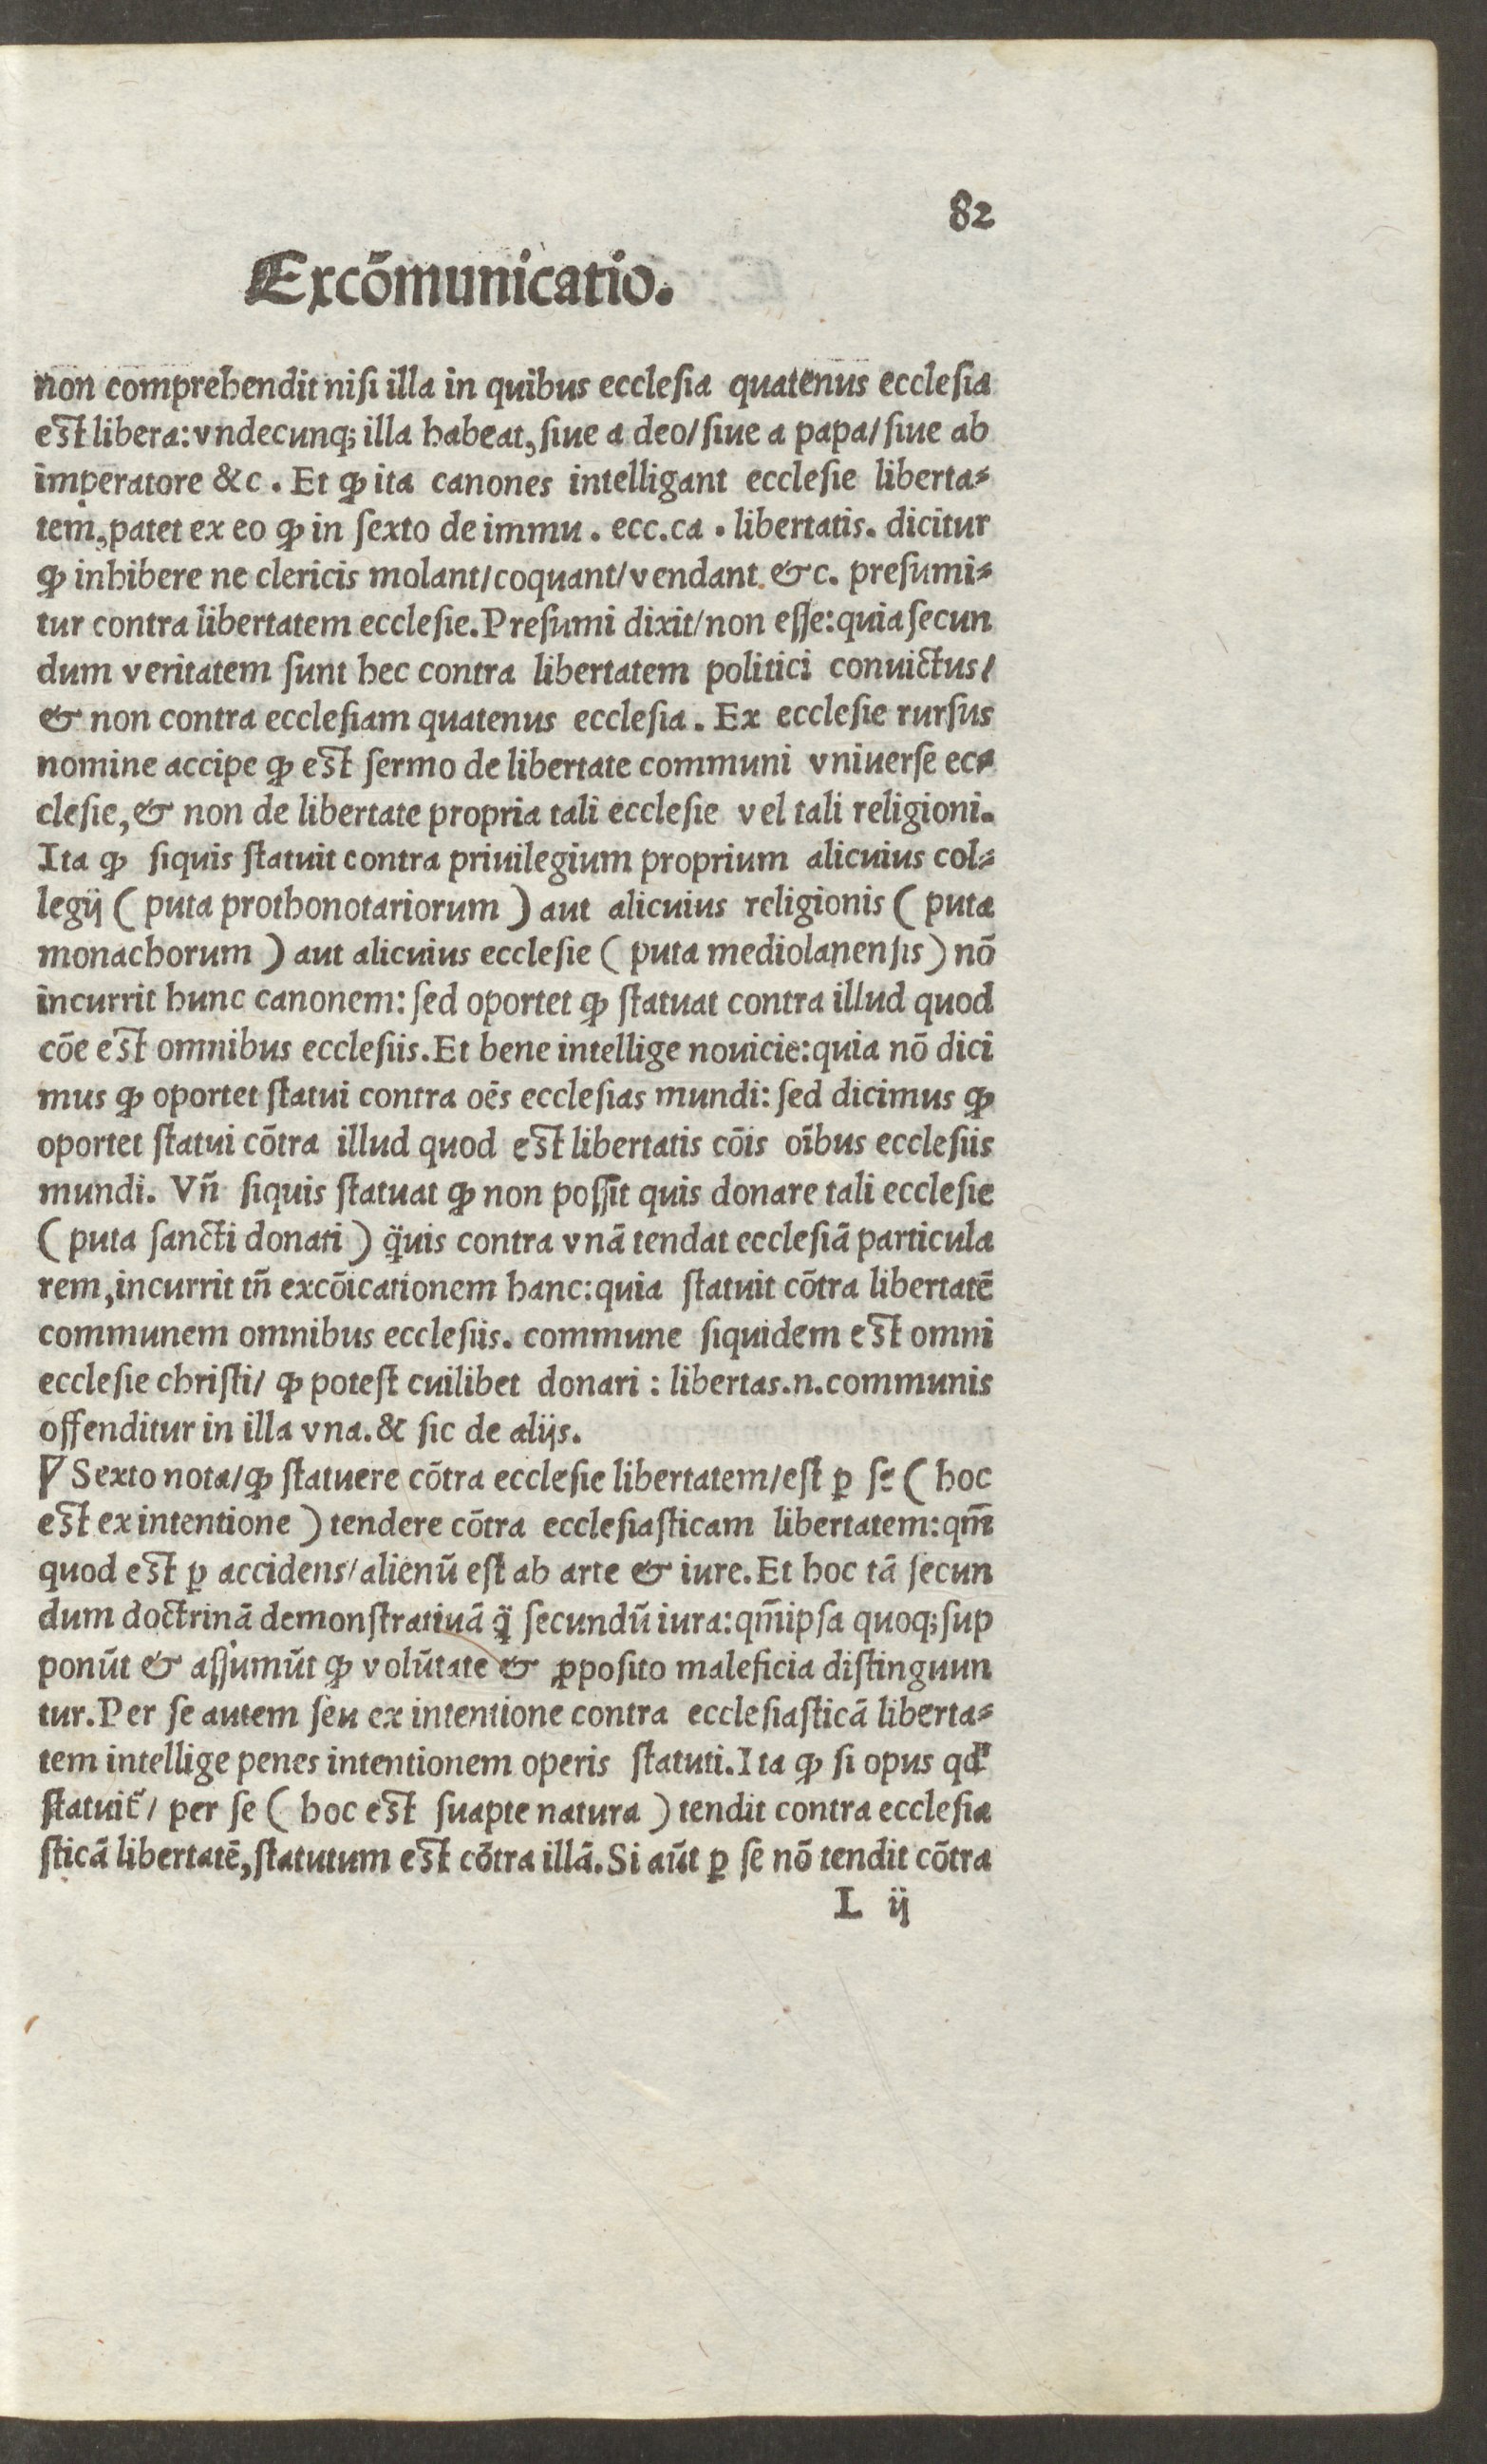 82
Excõmunicatio.
non comprehendit nisi illa in quibus ecclesia quatenus ecclesia
est libera: vndecunq; illa habeat, siue a deo/ siue a papa/ siue ab
imperatore &c. Et ꝙ ita canones intelligant ecclesie liberta⸗
tem, patet ex eo ꝙ in sexto de immu. ecc. ca. libertatis. dicitur
ꝙ inhibere ne clericis molant/ coquant/ vendant &c. presumi⸗
tur contra libertatem ecclesie. Presumi dixit/ non esse: quia secun
dum veritatem sunt hec contra libertatem politici conuictus/
& non contra ecclesiam quatenus ecclesia. Ex ecclesie rursus
nomine accipe ꝙ est sermo de libertate communi vniuerse ec⸗
clesie, & non de libertate propria tali ecclesie vel tali religioni.
Ita ꝙ siquis statuit contra priuilegium proprium alicuius col⸗
legij (puta prothonotariorum) aut alicuius religionis (puta
monachorum) aut alicuius ecclesie (puta mediolanensis) nõ
incurrit hunc canonem: sed oportet ꝙ statuat contra illud quod
cõe est omnibus ecclesiis. Et bene intellige nouicie: quia nõ dici
mus ꝙ oportet statui contra oẽs ecclesias mundi: sed dicimus ꝙ
oportet statui cõtra illud quod est libertatis cõis oĩbus ecclesiis
mundi. Vñ siquis statuat ꝙ non possit quis donare tali ecclesie
(puta sancti donati) q̃uis contra vnã tendat ecclesiã particula
rem, incurrit tñ excõicationem hanc: quia statuit cõtra libertatẽ
communem omnibus ecclesiis. commune siquidem est omni
ecclesie christi/ ꝙ potest cuilibet donari: libertas .n. communis
offenditur in illa vna. & sic de alijs.
¶ Sexto nota/ ꝙ statuere cõtra ecclesie libertatem/ est ꝑ se (hoc
est ex intentione) tendere cõtra ecclesiasticam libertatem: qm̃
quod est ꝑ accidens/ alienũ est ab arte & iure. Et hoc tã secun
dum doctrinã demonstratiuã q̃ secundũ iura: qm̃ ipsa quoq; sup
ponũt & assumũt ꝙ volũtate & ꝓposito maleficia distinguun
tur. Per se autem seu ex intentione contra ecclesiasticã liberta⸗
tem intellige penes intentionem operis statuti. Ita ꝙ si opus qd̃
statuit᷑/ per se (hoc est suapte natura) tendit contra ecclesia
sticã libertatẽ, statutum est cõtra illã. Si aũt ꝑ se nõ tendit cõtra
L ij